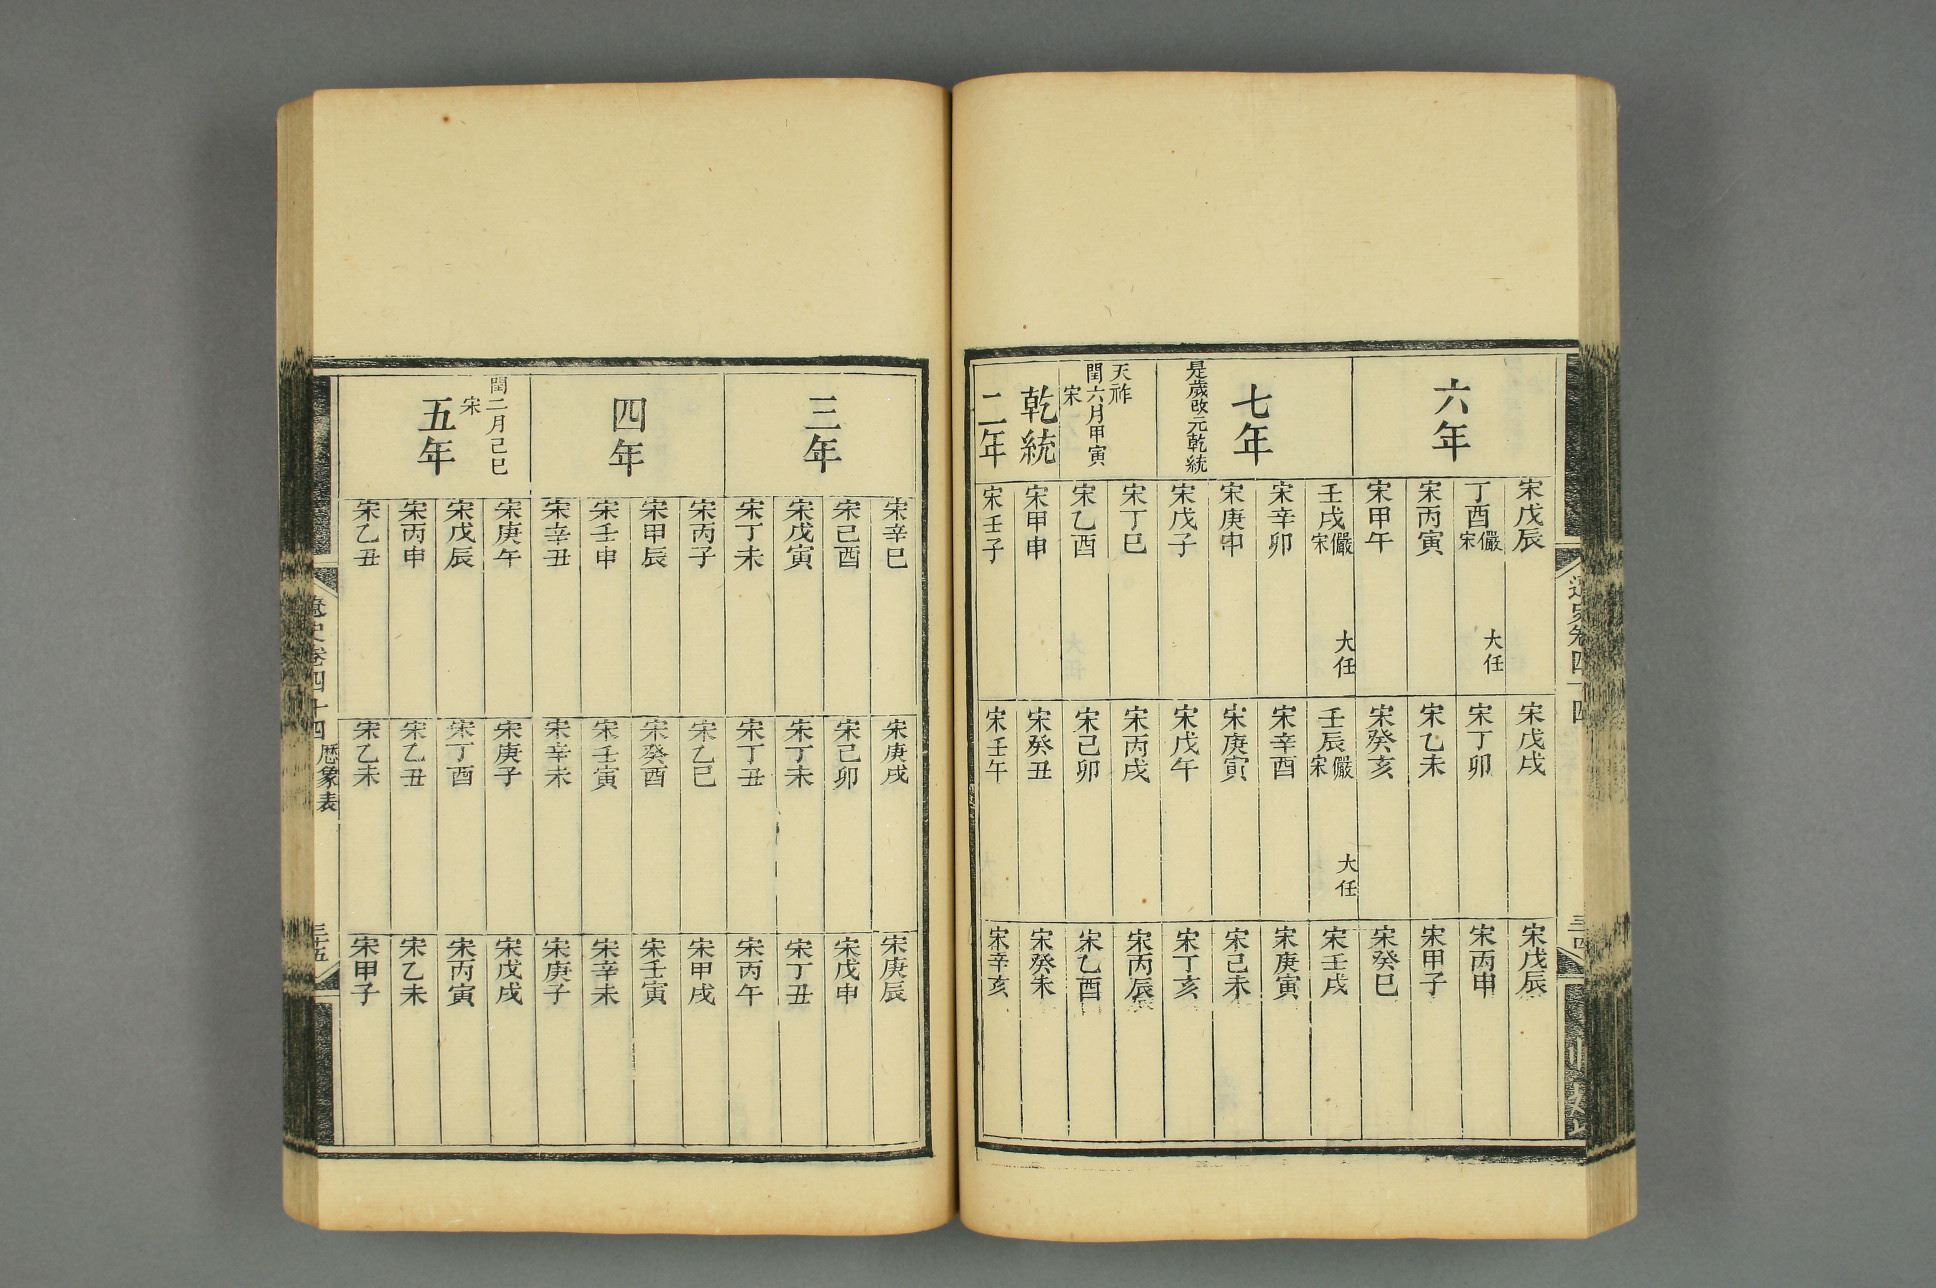 遼史卷四十四
三十四
六年
宋戊辰
宋戊戌
宋戊辰
丁酉儼
宋
大任
宋丁卯
宋丙申
宋丙寅
宋乙未
宋甲子
宋甲午
宋癸亥
宋癸巳
七年
是歲改元乾統
壬戌儼
宋
大任
壬辰儼
宋
大任
宋壬戌
宋辛卯
宋辛酉
宋庚寅
宋庚申
宋庚寅
宋己未
宋戊子
宋戊午
宋丁亥
天祚
閏六月甲寅
宋
乾統
二年
宋丁巳
宋丙戌
宋丙辰
宋乙酉
宋己卯
宋乙酉
宋甲申
宋癸丑
宋癸未
宋壬子
宋壬午
宋辛亥
三年
宋辛巳
宋庚戌
宋庚辰
宋己酉
宋己卯
宋戊申
宋戊寅
宋丁未
宋丁丑
宋丁未
宋丁丑
宋丙午
四年
宋丙子
宋乙巳
宋甲戌
宋甲辰
宋癸酉
宋壬寅
宋壬申
宋壬寅
宋辛未
宋辛丑
宋辛未
宋庚子
閏二月己巳
宋
五年
宋庚午
宋庚子
宋戊戌
宋戊辰
宋丁酉
宋丙寅
宋丙申
宋乙丑
宋乙未
宋乙丑
宋乙未
宋甲子
遼史卷四十四
歷象表
三十五